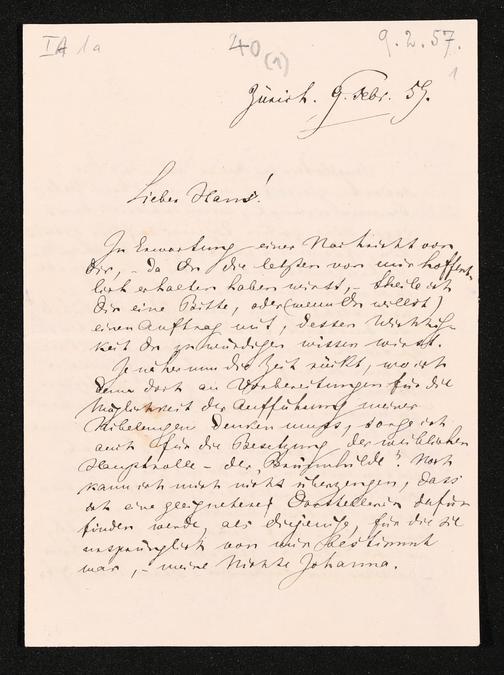 IA 1a
40
(1)
9.2.57.
1
Zürich. 9. Febr. 57.
Lieber Hans!
In Erwartung einer Nachricht von
dir, – da du die letzten von mir hoffent-
lich erhalten haben wirst, – theile ich
dir eine Bitte, oder (wenn du willst)
einen Auftrag mit, dessen Wichtig-
keit du zu würdigen wissen wirst.
Je näher nun die Zeit rückt, wo ich
denn doch an Vorbereitungen für die
Möglichkeit der Aufführung meiner
Nibelungen denken muss, sorge ich
auch für die Besetzung der weiblichen
Hauptrolle – der "Brünnhilde". Noch
kann ich mich nicht überzeugen, dass
ich eine geeignetere Darstellerin dafür
finden werde, als diejenige, für die sie
ursprünglich von mir bestimmt
war, – meine Nichte Johanna.